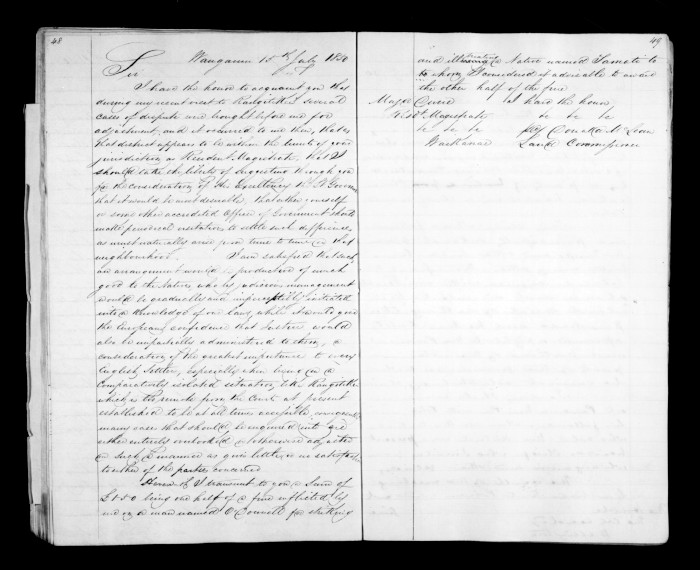 48
Wanganui 15th July 1850
Sir
I have the honor to acquaint you that
during my recent visit to Rangitikei several
cases of dispute were brought before me for
adjustment, and it occurred to me then, that as
that district appears to be within the limits of your
jurisdiction as Resident Magistrate, that I
should take the liberty of suggesting through you
for the consideration of His Excellency the Lt Governor
that it would be most desirable, that either yourself
or some other accredited Officer of Government should
make periodical visitations to settle such differences
as must naturally arise from time to time in that
neighbourhood. I am satisfied that such
an arrangement would be productive of much
good to the Natives, who by judicious management
would be gradually and imperceptibly initiated
into a knowledge of our Laws, while it would give
the Europeans confidence that Justice would
also be impartially administered to them, a
consideration of the greatest importance to every
English Settler, especially when living in a
comparatively isolated situation, like Rangitikei
which is too remote from the Court at present
established to be at all times accessible, consequently
many cases that should be enquired into are
either entirely overlooked or otherwise adjusted
in such a manner as gives little or no satisfaction
to either of the parties concerned
Herewith I transmit to you a Sum of
being one half of a fine inflicted by
me on a man named O'Connell for striking
49
and illtreating a Native named to
whom I considered it advisable to award
the other half of the fine
I have the honor
Major Durie
Resdt Magistrate
&c &c &c
&c &c &c
Donald McLean
Land Commissioner